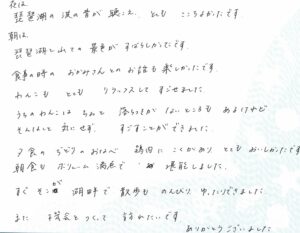 夜は
琵琶湖の波の音が聴こえ、とても ここちよかったです。
朝は、
琵琶湖と山々の景色がすばらしかったです。
食事の時の おかみさんとのお話も楽しかったです。
わんこも とても リラックスして すごせました。
うちのわんこは 落ちつきがないところもあるけれど
そんなして 気にせず、すごすことができました。
夕食の じどりのおなべ 鶏肉に こくがあり、とても おいしかったです。
朝食も ボリューム満点で 堪能しました。
すぐそこが 湖畔で 散歩も のんびり、ゆったりできました
また 機会をつくって 訪れたいです
ありがとうございました